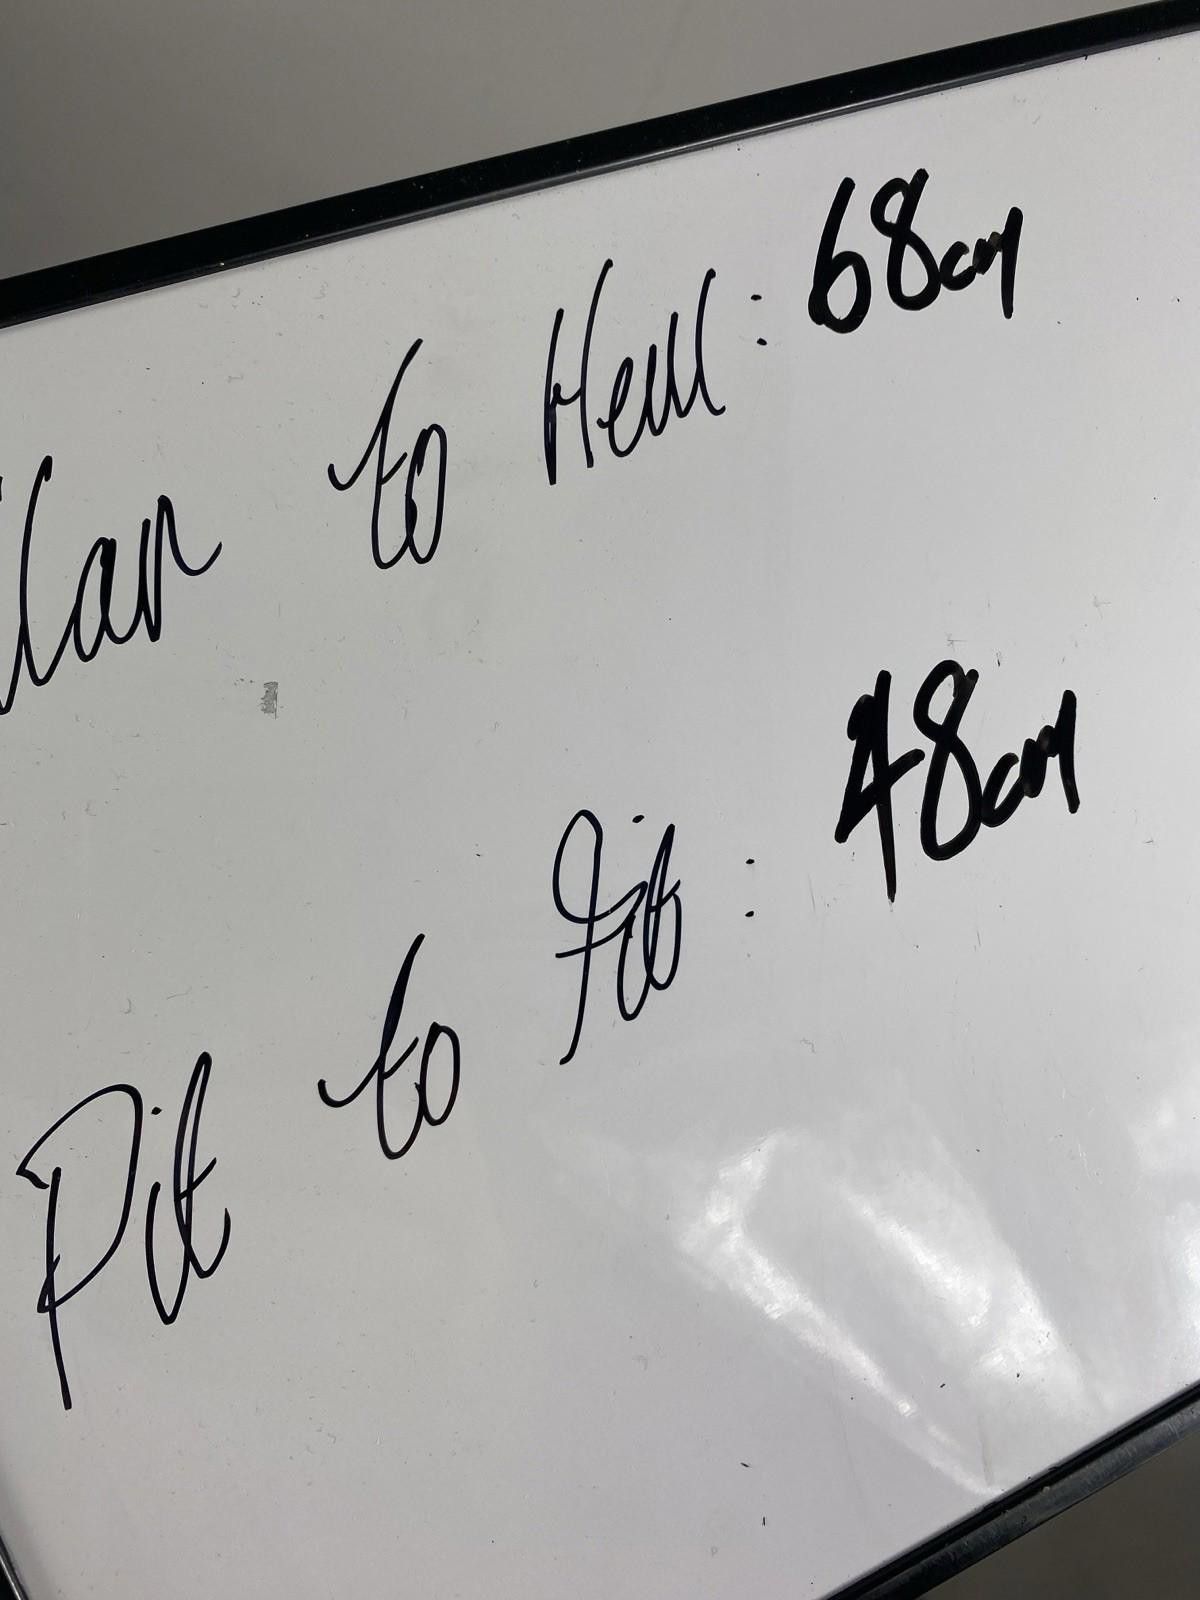 llar to Hem: 68cm
Pit to Pit: 48cm